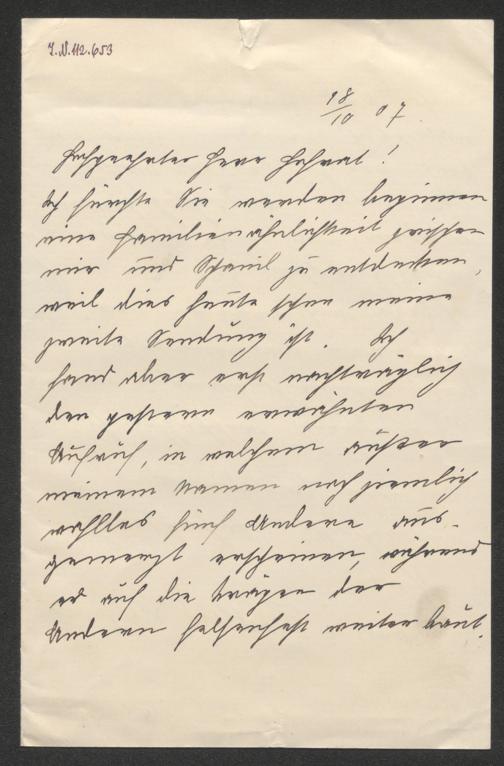 I.N. 112.653
18/10 07.
Hochgeehrter Herr Hofrat!
Ich fürchte Sie werden beginnen
eine Familienähnlichkeit zwischen
mir und zu entdecken,
weil dies heute schon meine
zweite Sendung ist. Ich
fand aber erst nachträglich
den gestern erwähnten
Aufruf, in welchem außer
meinem Namen noch ziemlich
wahllos fünf Andere aus-
gemerzt erscheinen, während
er auf die der
Andern felsenfest weiter baut.